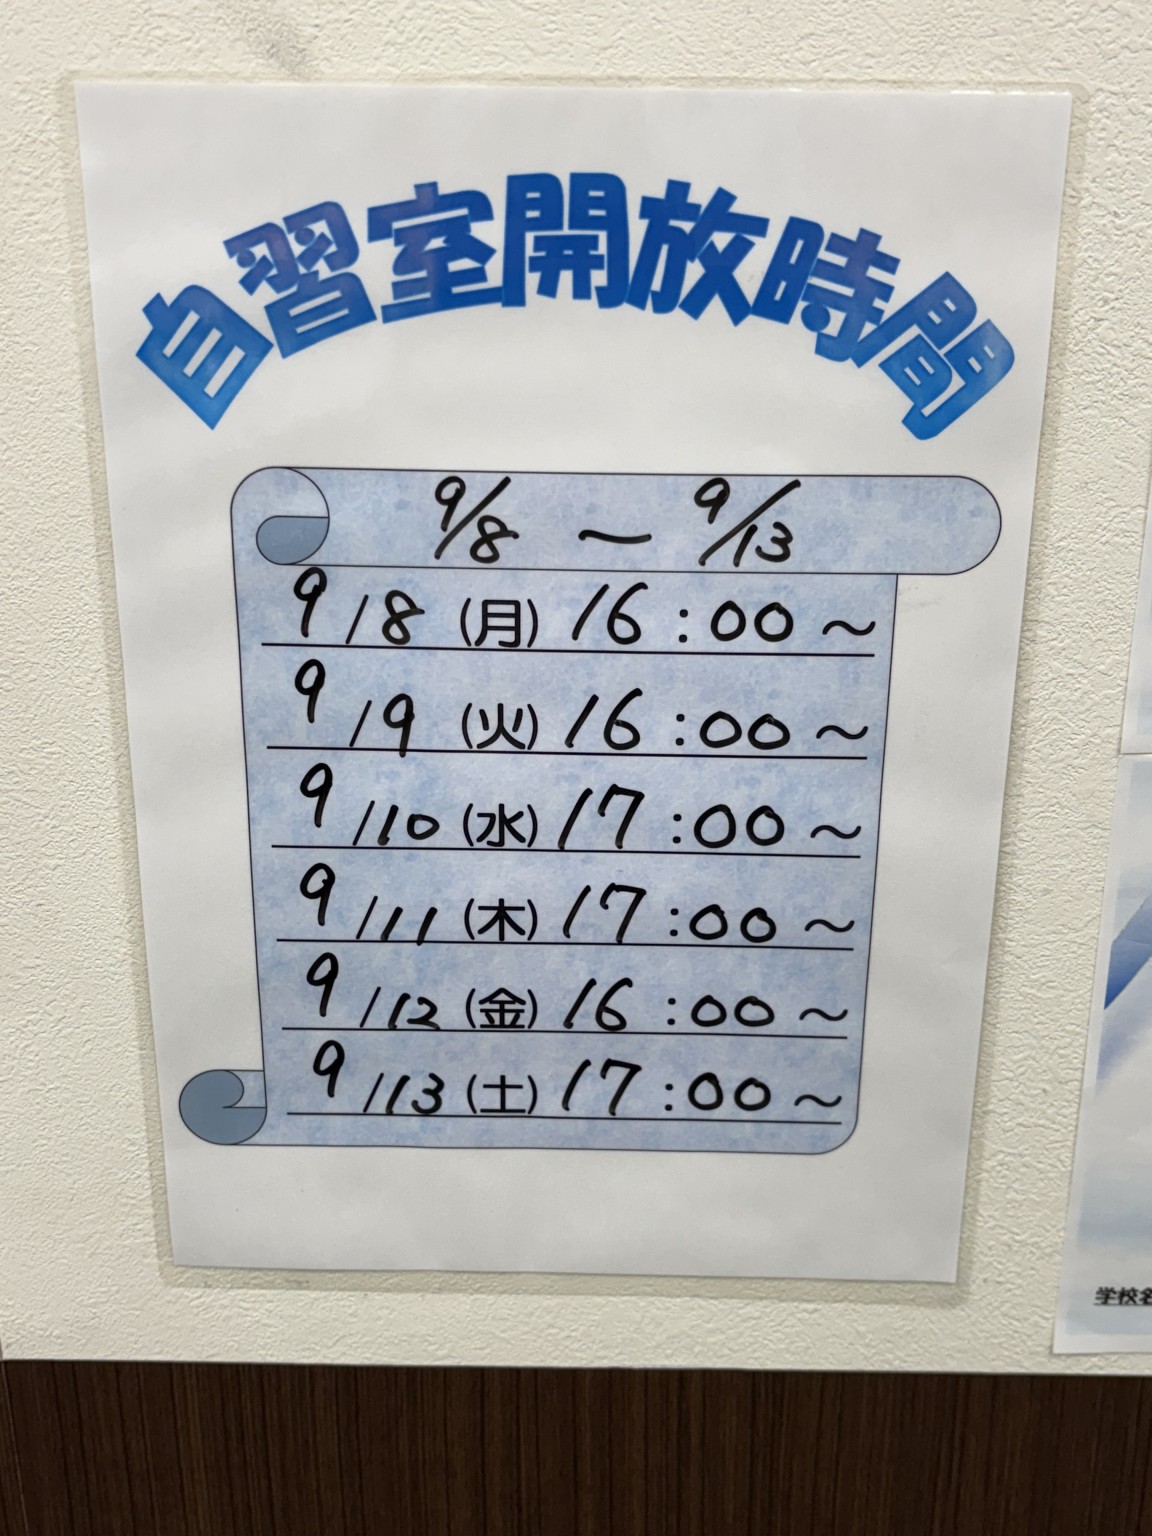 自習室開放時間
9/8 〜 9/13
9/8 (月) 16:00〜
9/9 (火) 16:00〜
9/10 (水) 17:00〜
9/11 (木) 17:00〜
9/12 (金) 16:00〜
9/13 (土) 17:00〜
学校名